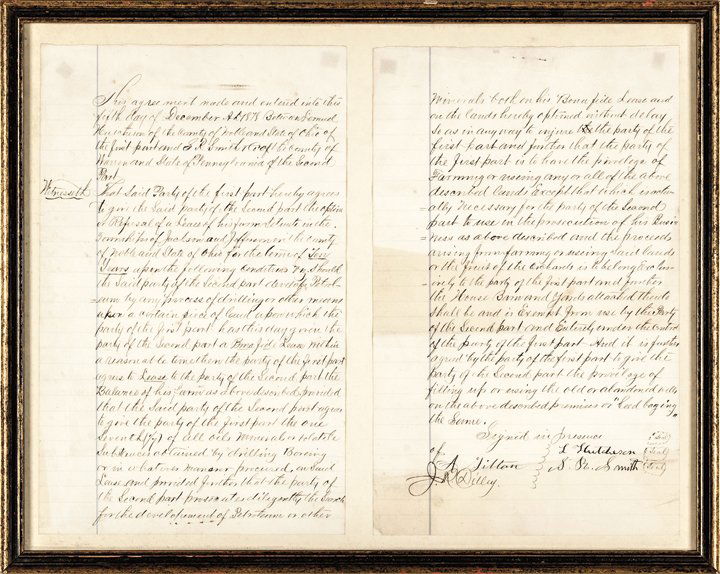 This agreement made and entered into this
fifth day of December A.D. 1878 Between Samuel
Hutcheson of the County of Noble and State of Ohio of
the first part and S. R. Smith of the county of
Warren and State of Pennsylvania of the Second
Part.
Witnesseth That Said Party of the first part hereby agrees
to give the Said party of the Second part the option
or Refusal of a Lease of his farm Situate in the
Townships of Jackson and Jefferson in the County
of Noble and State of Ohio for the term of Ten
Years upon the following Conditions Viz Should
the Said party of the Second part develope Petrol-
eum by any process of drilling or other means
upon a certain piece of Land upon which the
party of the first part has this day given the
party of the Second part a Bona fide Lease within
a reasonable time then the party of the first part
agrees to Lease to the party of the Second part the
Balance of his farm as above described, provided
that the Said party of the Second part agrees
to give the party of the first part the one
Seventh (1/7) of all oils Mineral or volatile
Substances obtained by drilling Boreing
or in whatever manner procured, on Said
Lease and provided further that the party of
the Second part prosecutes diligently the Search
for the developement of Petroleum or other
Minerals both on his Bonafide Lease and
on the Lands hereby optioned without delay
So as in any way to injure the party of the
first part and further that the party of
the first part is to have the privelege of
Farming or useing any or all of the above
described Lands Except that which is actu-
ally Necessary for the party of the Second
part to use in the prosecution of his Busi-
ness as above described and the proceeds
arising from farming or useing said Lands
or the fruit of the Orchards is to belong
only to the party of the first part and further
the House Barn and Yards attached thereto
Shall be and is Exempt from use by the Party
of the Second part and Entirely under the Control
of the party of the first part. And it is further
agreed by the party of the first part to give the
party of the Second part the privilege of
fitting up or using the old or abandoned wells
on the above described premises or "Seed baging"
the Same.
Signed in presence
of
A. Tilton
J. Dilley
S Hutcheson (Seal)
S. R. Smith (Seal)